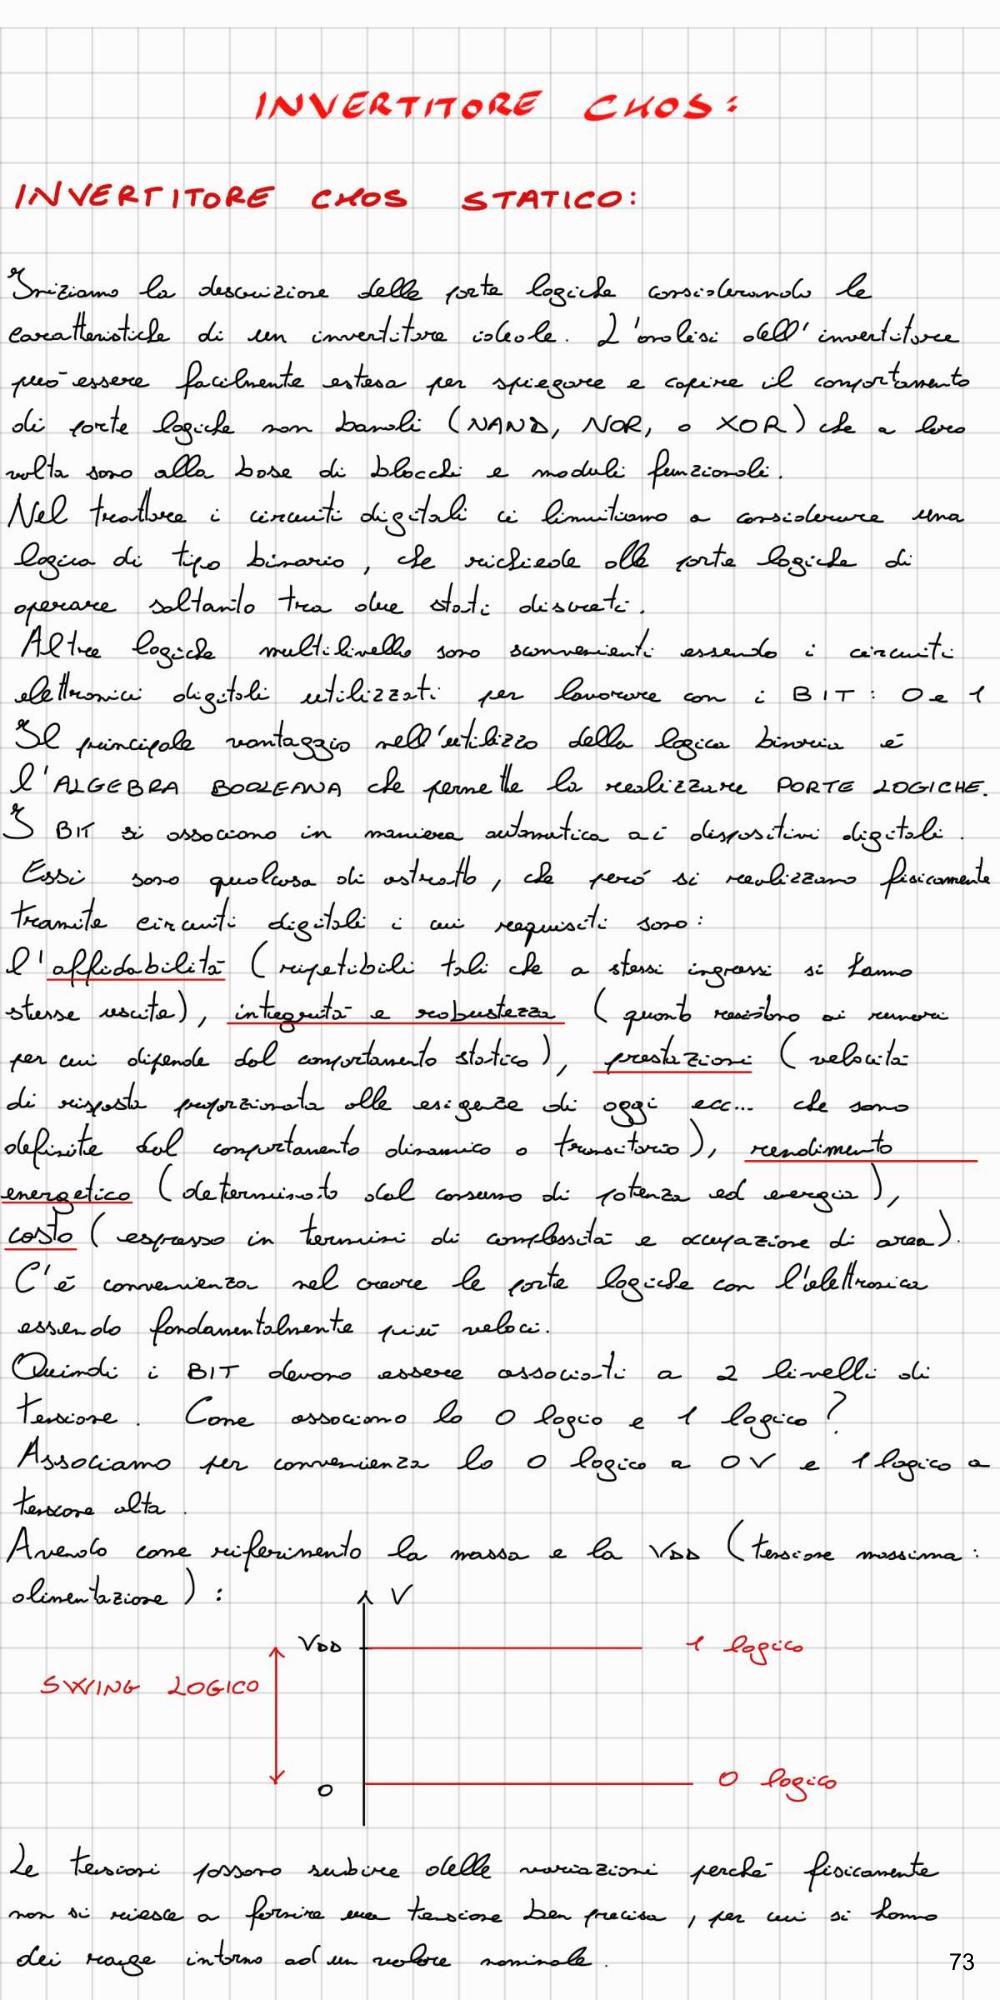 INVERTITORE CMOS:
INVERTITORE CMOS STATICO:
Iniziamo la descrizione delle porte logiche considerando le
caratteristiche di un invertitore ideale. L'analisi dell'invertitore
può essere facilmente estesa per spiegare e capire il comportamento
di porte logiche non banali (NAND, NOR, o XOR) che a loro
volta sono alla base di blocchi e moduli funzionali.
Nel trattare i circuiti digitali ci limitiamo a considerare una
logica di tipo binario, che richiede alle porte logiche di
operare soltanto tra due stati discreti.
Altre logiche multilivello sono sconvenienti essendo i circuiti
elettronici digitali utilizzati per lavorare con i BIT: 0 e 1
Il principale vantaggio nell'utilizzo della logica binaria è
l'ALGEBRA BOOLEANA che permette la realizzare PORTE LOGICHE.
I BIT si associano in maniera automatica ai dispositivi digitali.
Essi sono qualcosa di astratto, che però si realizzano fisicamente
tramite circuiti digitali i cui requisiti sono:
l'affidabilità (ripetibili tali che a stessi ingressi si hanno
stesse uscite), integrità e robustezza (quanto resistono ai rumori
per cui dipende dal comportamento statico), prestazioni (velocità
di risposta proporzionata alle esigenze di oggi ecc... che sono
definite dal comportamento dinamico o transitorio), rendimento
energetico (determinato dal consumo di potenza ed energia),
costo (espresso in termini di complessità e occupazione di area).
C'è convenienza nel creare le porte logiche con l'elettronica
essendo fondamentalmente più veloci.
Quindi i BIT devono essere associati a 2 livelli di
tensione. Come associamo lo 0 logio e 1 logico?
Associamo per convenienza lo 0 logico a 0V e 1 logico a
tensione alta.
Avendo come riferimento la massa e la VDD (tensione massima:
alimentazione):
V
VDD
1 logico
SWING LOGICO
0
0 logico
Le tensioni possono subire delle variazioni perché fisicamente
non si riesce a fornire una tensione ben precisa, per cui si hanno
dei range intorno ad un valore nominale.
73